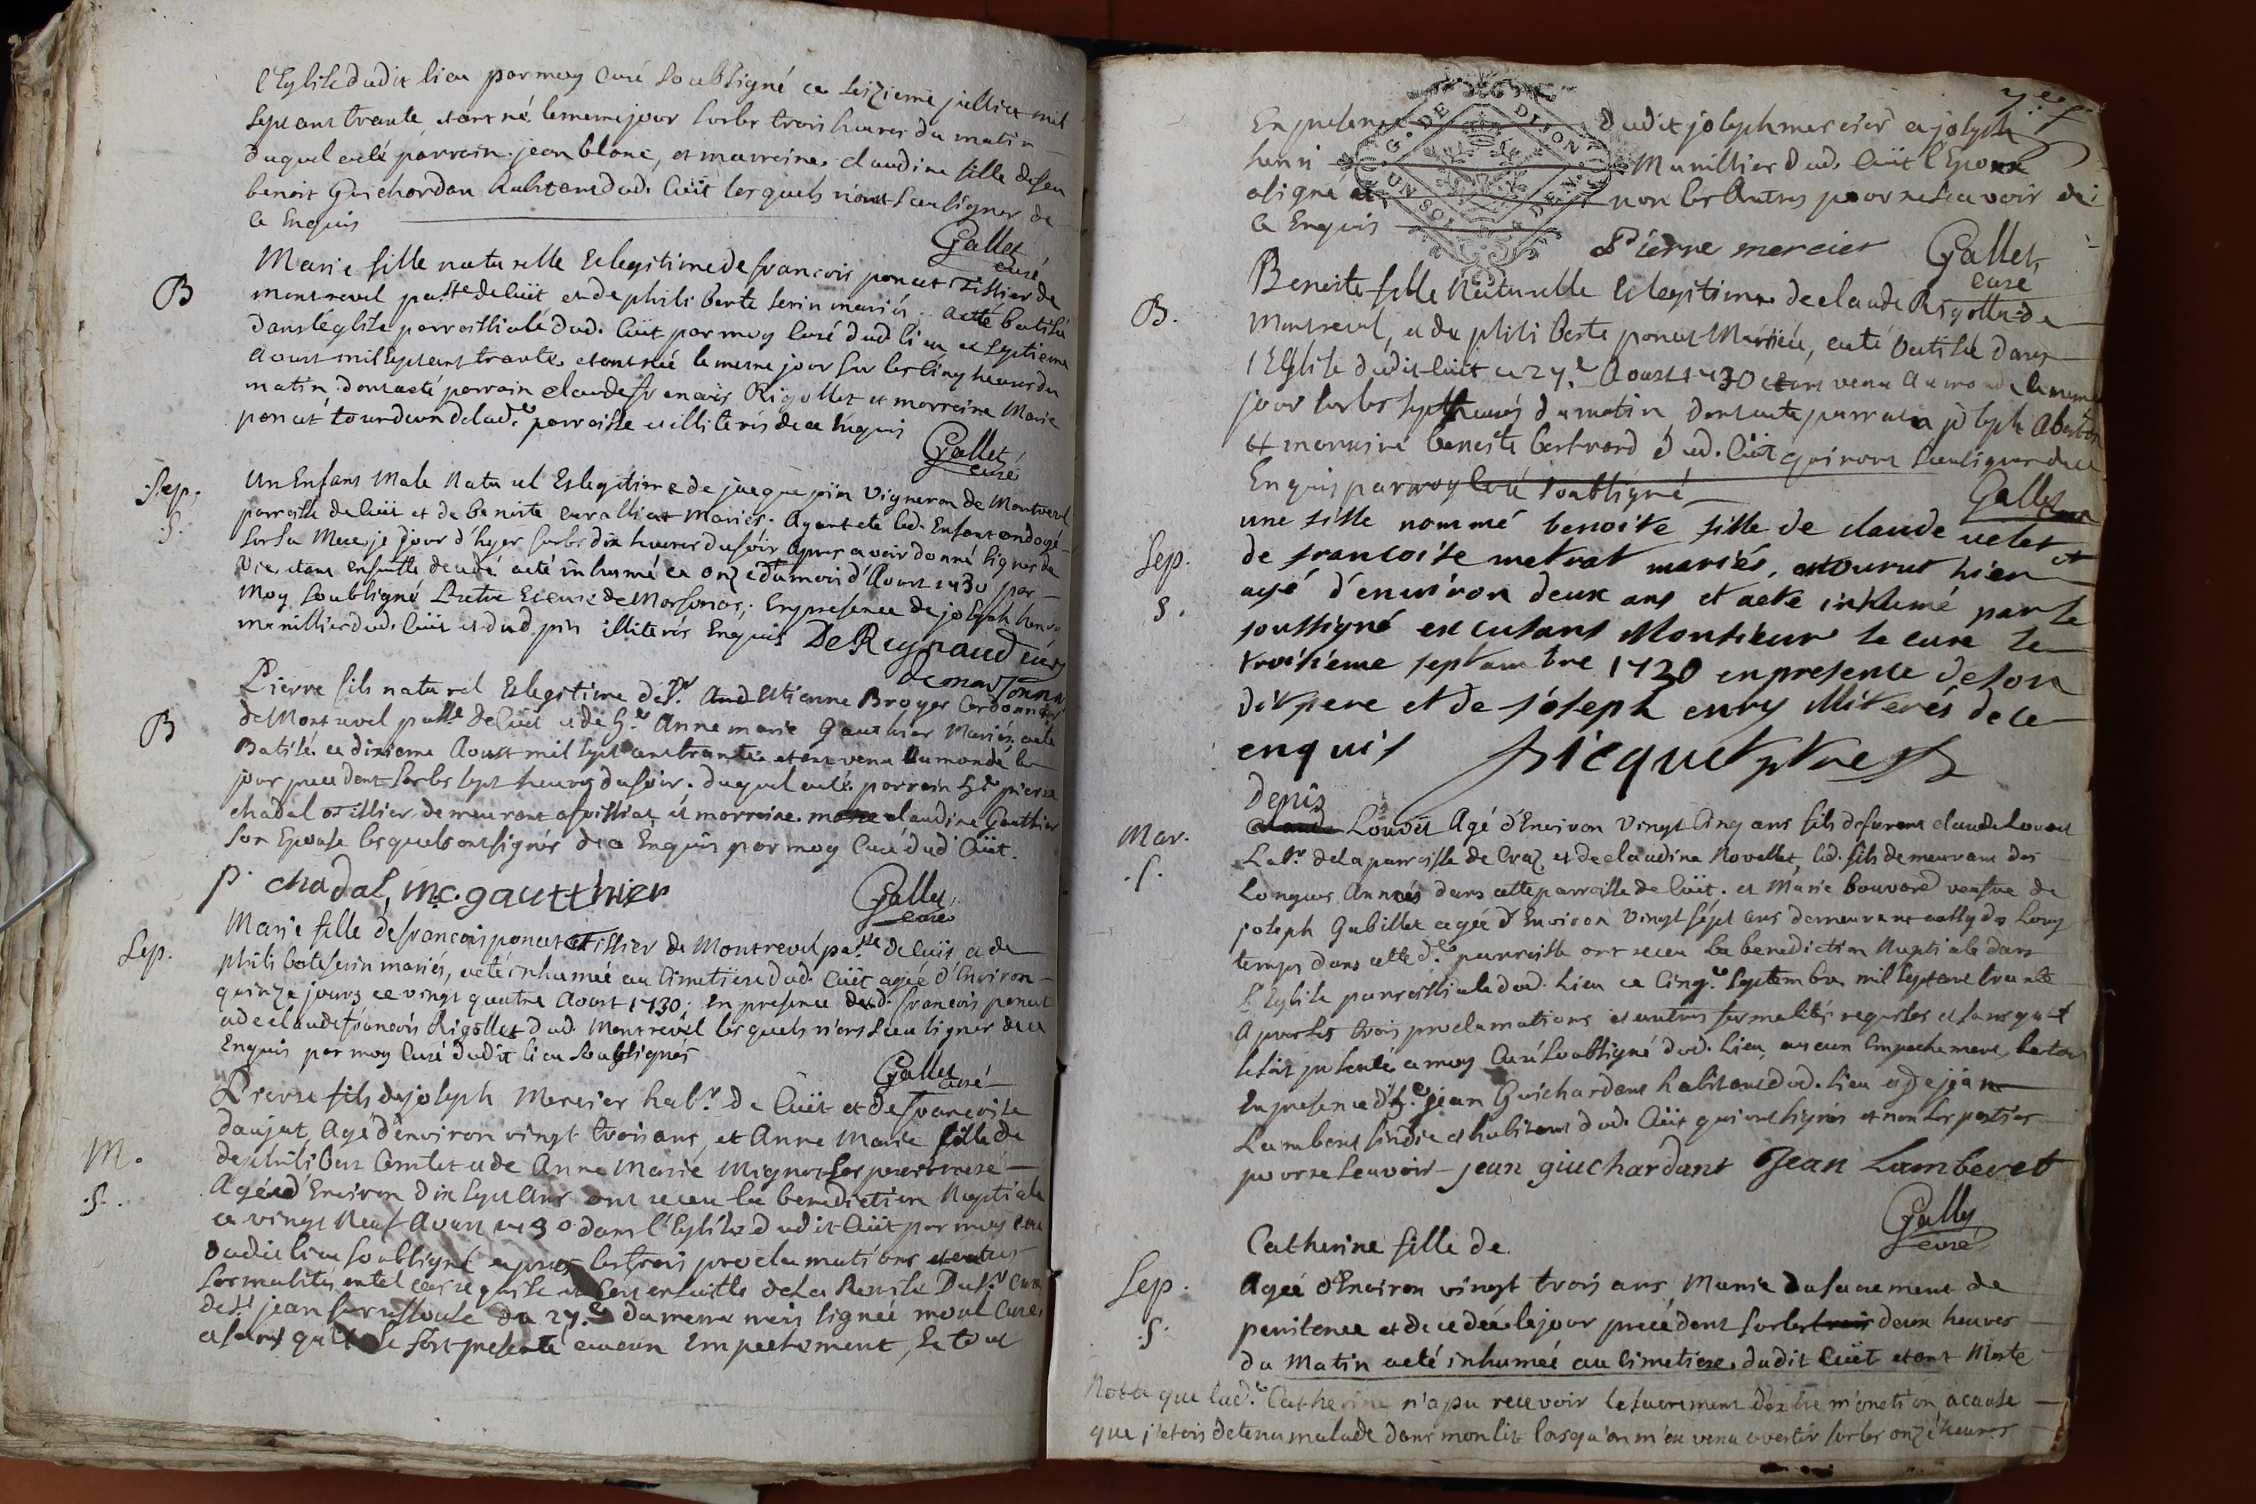 l'Eglise dudit lieu par moy curé soubsigné ce seizieme juillet mil
sept cent trante, etant né le meme jour sur les trois heures du matin
duquel a eté parrain jean blanc, et marraine claudine fille de feu
benoit Guichardan habitans dud. Cüet lesquels n'ont sceu signer de
ce Enquis
Gallet
curé
B
Marie fille naturelle et legitime de francois poncet Tissier de
montrevel pa.sse de Cüet et de philiberte serin mariés a eté batisée
dans l'église parroissiale dud. Cüet par moy curé dud. lieu ce septieme
Aoust mil sept cent trante, etant née le meme jour sur les cinq heures du
matin. dont a eté parrain claude francois Rigollet et marraine Marie
poncet de lad.e parroisse illiterés de ce Enquis
Gallet
curé
Sep.
S.
Un Enfant Male Naturel et legitime de jacque vigneron de Montrevel
parroisse de Cüet et de benoite mariés. Ayant eté led. Enfant ondoyé
le jour d'hyer sur les dix heures du soir apres avoir donné signes de
Vie, etant ensuitte decedé a eté inhumé ce onze du mois d'Aoust 1730 par
Moy soubsigné Pretre et curé de Marsonas, En presence de joseph henri
manillier dud. Cüet et dud. illiterés Enquis De Reynaud curé
de marsonna
B
Pierre fils naturel et legitime de Sr. Estienne Broyer Cordonnier
de Montrevel pa.sse de Cüet et de h.e Anne marie Gauthier Mariés, a eté
Batisé ce dixieme Aoust mil sept cent trante et etant venu au monde le
jour precedent sur les sept heures du soir. duquel a eté parrain Sr pierre
chadal Tissier demeurant a foissiat et marraine claudine Gauthier
son Epouse lesquels ont signés de ce Enquis par moy Curé dud. Cüet.
p. chadal, mc. gautthier
Gallet
curé
Sep.
Marie fille de francois poncet Tissier de Montrevel pa.sse de Cüet et de
philiberte serin mariés, a eté inhumée au Cimetiere dud. Cüet agée d'Environ
quinze jours ce vingt quatre Aoust 1730. En presence dud. francois poncet
et de claude francois Rigollet dud. Montrevel lesquels n'ont sceu signer de ce
Enquis par moy Curé dudit lieu soubsigné
Gallet
curé
M.
S.
Pierre fils de joseph Mercier hab.t de Cüet et de francoise
daujat, Agé d'environ vingt trois ans, et Anne Marie fille de
de philibert et de Anne Marie Mignot
Agée d'Environ dix sept ans ont receu la benediction Nuptiale
ce vingt Neuf Aoust 1730 dans l'Eglise dudit Cüet par moy curé
dudit lieu soubsigné apres les trois proclamations et autres
formalités en tel cas requise et ensuitte de la Remise Du Sr Curé
de St jean sur ressouse du 27.e du meme mois signée moul Curé,
et sans qu'il se soit presenté aucun Empechement, Le tout
En presence dudit joseph mercier et joseph
henri Manillier dud. Cüet l'Epoux
a signé et non les Autres pour ne sçavoir de
ce Enquis
G. DE DIJON
Pierre mercier
Gallet,
curé
B.
Benoite fille Naturelle et legitime de claude Rigollet de
Montrevel, et de philiberte poncet Mariés, a eté batisée dans
l'Eglise dudit Cüet ce 27.e Aoust 1730 etant venue au monde le meme
jour sur les sept heures du matin dont a eté parrain joseph
et marraine benoite bertrand dud. Cüet qui n'ont sceu signer de ce
Enquis par moy Curé soubsigné
Gallet
Sep.
S.
une fille nommé benoite fille de claude velet et
de francoise metrat mariés, mourut hier
agé d'environ deux ans et a eté inhumé par le
soussigné excusant Monsieur le curé le
troisieme septambre 1730 en presence de son
dit pere et de joseph enry illiterés de ce
enquis
Picquet ptre
Mar.
S.
Denis
Louvet Agé d'Environ Vingt Cinq ans fils de furent claude Louvet
Lab.r de la parroisse de Craz et de claudine Novellet, led. fils demeurant des
Longues Années dans cette parroisse de Cüet. et Marie bouvard veufve de
joseph Gabillet agée d'Environ Vingt sept ans demeurant aussy de Long
temps dans cette d.e parroisse ont receu la benediction Nuptiale dans
l'Eglise parroissiale dud. Lieu ce Cinq.e septembre mil sept cent trante
Apres les trois proclamations et autres formalités requises et sans qu'il
se soit presenté a moy Curé soubsigné dud. Lieu aucun Empechement, Le tout
En presence d'h.e jean Guichardant habitant dud. Lieu et de jean
Lambert sindic et habitant dud. Cüet qui ont signés et non les parties
pour ne sçavoir jean giuchardant Jean Lamberet
Gallet
curé
Sep.
S.
Catherine fille de
Agée d'Environ vingt trois ans, Munie du sacrement de
penitence et decedée le jour precédent sur les deux heures
du Matin a eté inhumée au Cimetiere dudit Cüet etant Morte
Nota que lad.e Catherine n'a pu recevoir le sacrement d'extreme onction, a cause
que j'etois detenu malade dans mon lit lorsqu'on m'en venu avertir sur les onze heures